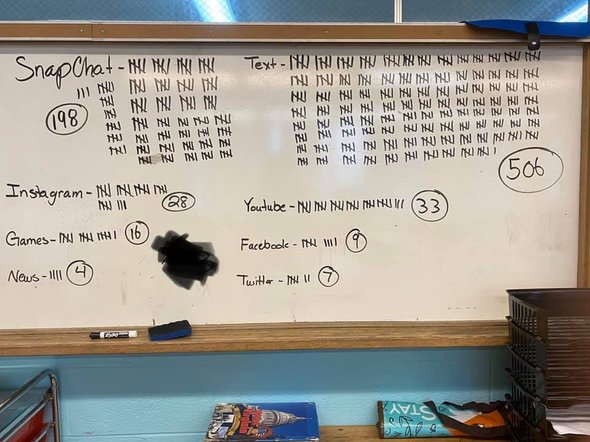 SnapChat -
198
Text -
506
Instagram -
28
Youtube -
33
Games -
16
Facebook -
9
News -
4
Twitter -
7
EXPO
STAY